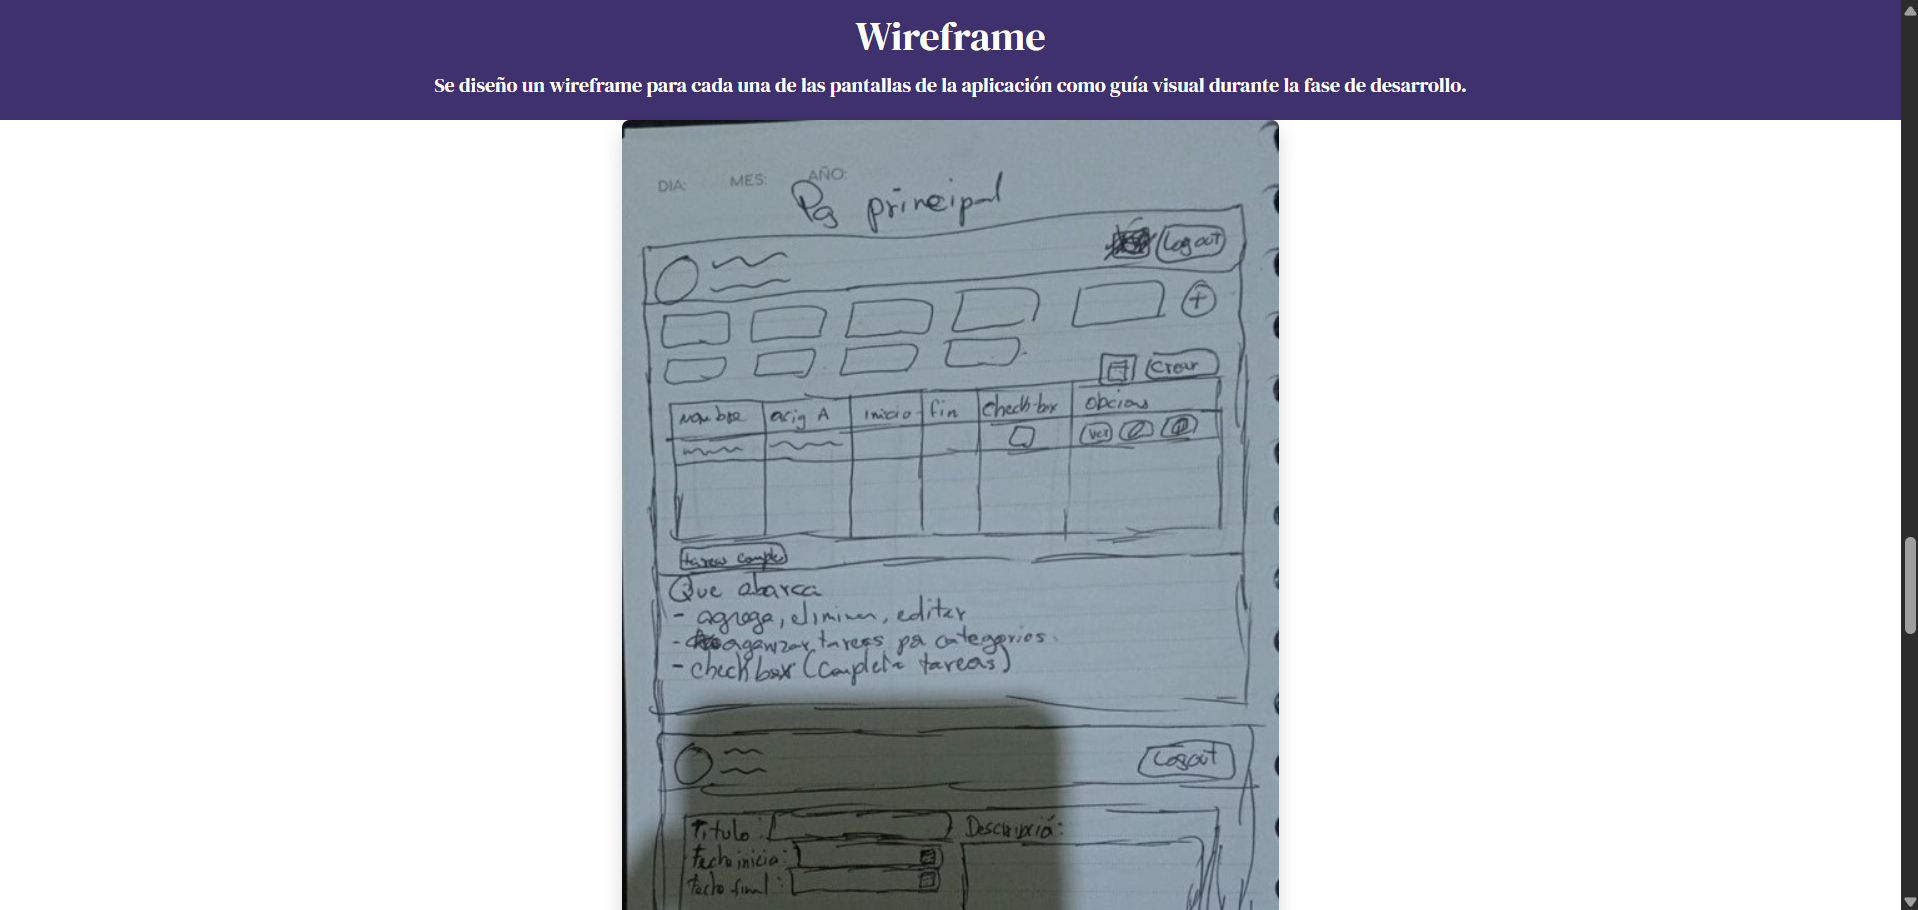 Wireframe
Se diseño un wireframe para cada una de las pantallas de la aplicación como guía visual durante la fase de desarrollo.
DIA: MES: AÑO:
Pg principal
Logout
+
Crear
Nombre asig A inicio fin check box opcions
ver
tareas comple
Que abarca
- agrega, eliminar, editar
- oganizar tareas por categorias.
- check box (completa tareas)
Logout
Titulo: Descripció:
fecha inicia:
fecha final: